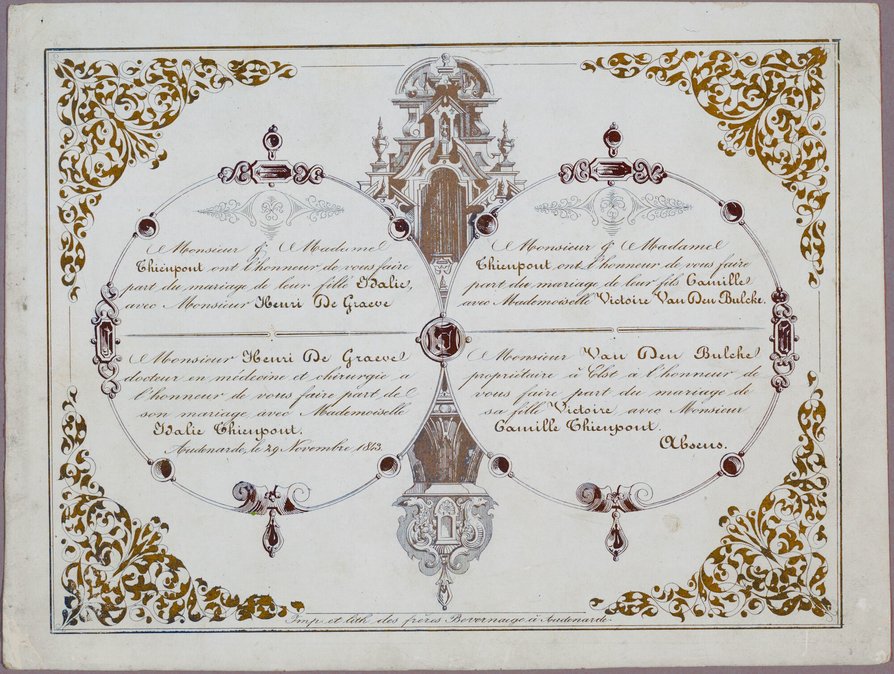 Monsieur & Madame
Thienpont ont l'honneur de vous faire
part du mariage de leur fille Idalie,
avec Monsieur Henri De Graeve
Monsieur Henri De Graeve
docteur en médecine et chirurgie a
l'honneur de vous faire part de
son mariage avec Mademoiselle
Idalie Thienpont.
Audenarde, le 29 Novembre 1843.
Monsieur & Madame
Thienpont ont l'honneur de vous faire
part du mariage de leur fils Camille
avec Mademoiselle Victoire Van Den Bulcke.
Monsieur Van Den Bulcke
propriétaire à Elst à l'honneur de
vous faire part du mariage de
sa fille Victoire avec Monsieur
Camille Thienpont.
Absens.
Imp. et lith. des frères Bevernaege à Audenarde.